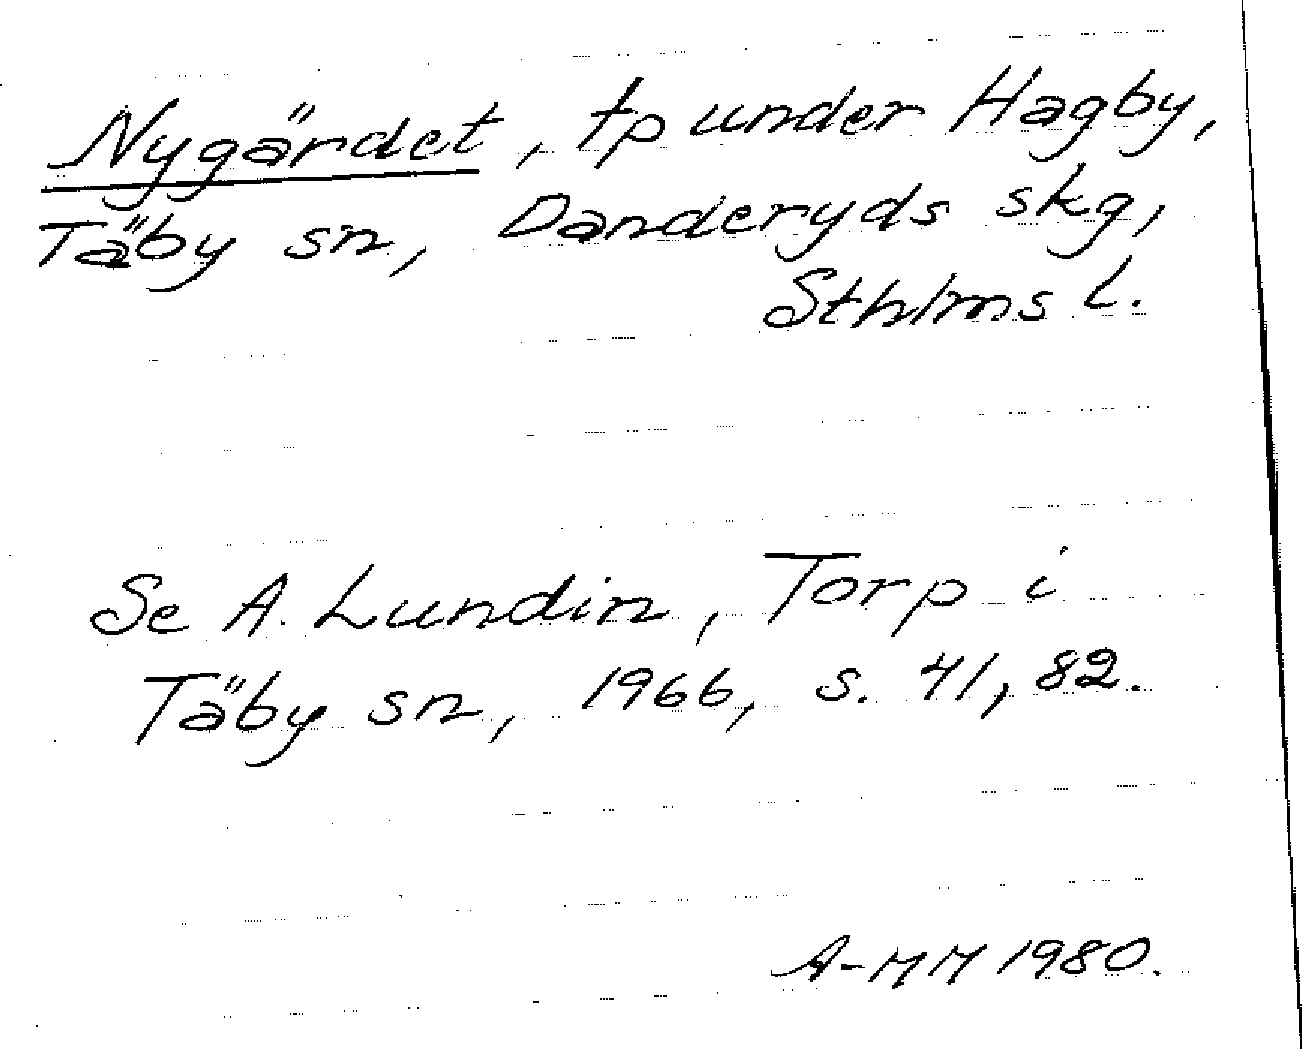 Nygärdet, tp under Hagby,
Täby sn, Danderyds skg,
Sthlms l.
Se A. Lundin, Torp i
Täby sn, 1966, s. 41, 82.
A-MM 1980.